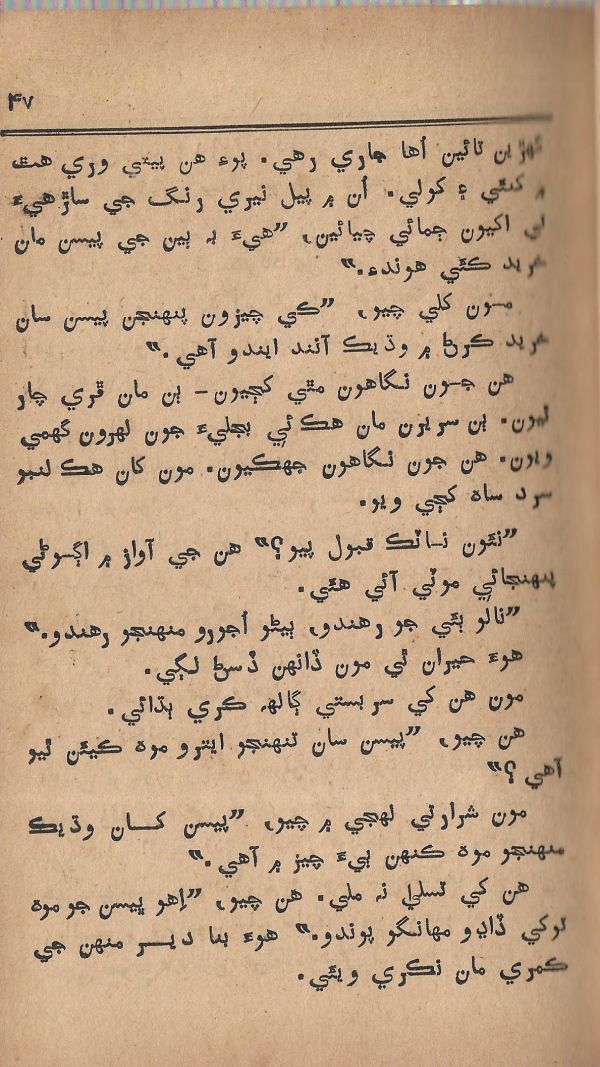 ۴۷
تائين اُها جاري رهي. پوءِ هن پيتي وري هٿ
۾ کنئي ۽ کولي. اُن ۾ پيل نيري رنگ جي ساڙهيءَ
تي اکيون ڄمائي چيائين، ”هيءَ بہ ٻين جي پيسن مان
خريد ڪئي هوندءِ.“
مـون کلي چيو، ”ڪي چيزون پنهنجن پيسن سان
خريد ڪرڻ ۾ وڌيڪ آنند ايندو آهي.“
هن جـون نگاهون مٿي کڄيون – ٻن مان ڦري چار
ٿيون. ٻن سريرن مان هڪ ئي بجليءَ جون لهرون گهمي
ويون. هن جون نگاهون جهڪيون. مون کان هڪ لنبو
سرد ساهہ کڄي ويو.
”نئون ناٽڪ قبول پيو؟“ هن جي آواز ۾ اڳوڻي
پنهنجائي موٽي آئي هئي.
”نالو ٻئي جو رهندو، ٻيڻو اُجورو منهنجو رهندو.“
هوءَ حيران ٿي مون ڏانهن ڏسڻ لڳي.
مون هن کي سربستي ڳالهہ ڪري ٻڌائي.
هن چيو، ”پيسن سان تنهنجو ايترو موهہ ڪيئن ٿيو
آهي؟“
مون شرارتي لهجي ۾ چيو، ”پيسن کــان وڌيڪ
منهنجو موهہ ڪنهن ٻيءَ چيز ۾ آهي.“
هن کي تسلي نہ ملي. هن چيو، ”اِهو پيسن جو موهہ
توکي ڏاڍو مهانگو پوندو.“ هوءَ بنا ديـر منهن جي
ڪمري مان نڪري ويئي.